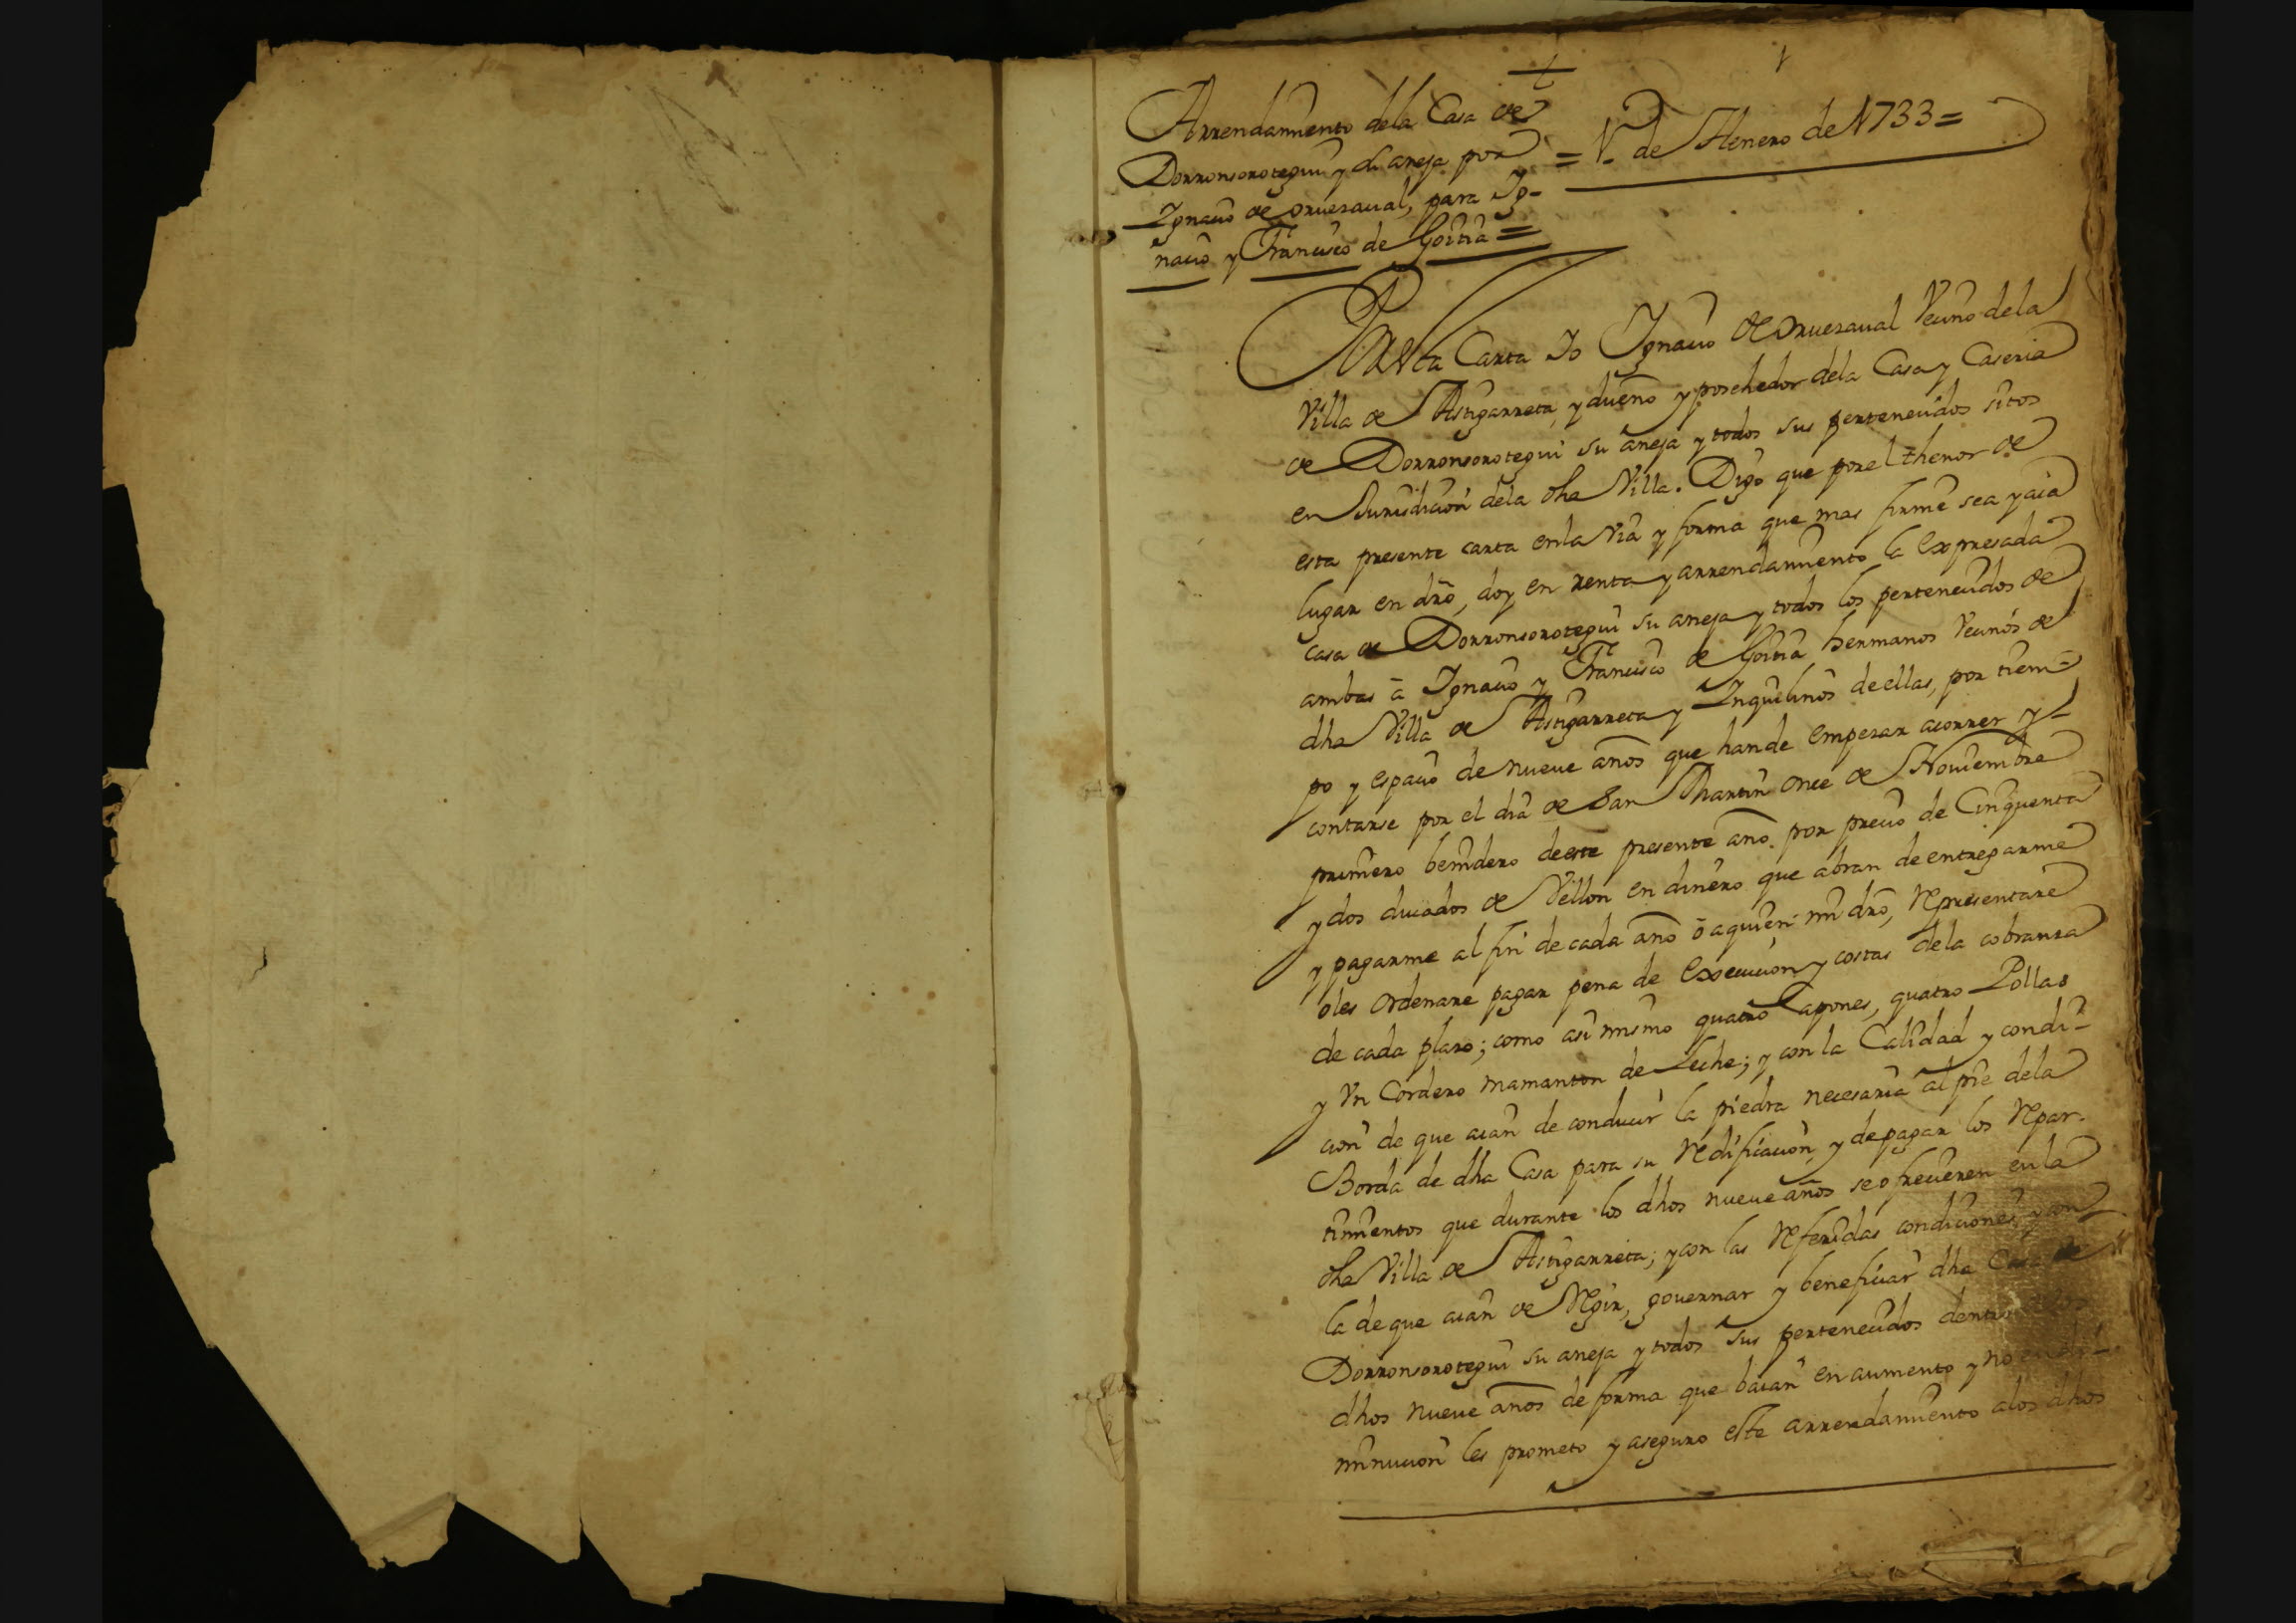 1
Arrendamiento dela Casa de
Dorronsorotegui y su aneja por
Ignacio de oruesaual, para Ig-
nacio y Francisco de Goitia =
= 1º de Henero de 1733 =
Por esta Carta Io Ignacio de oruesaual Vecino dela
Villa de Astigarreta, y dueño y posehedor dela Casa y Caseria
de Dorronsorotegui su aneja y todos sus pertenecidos sitos
en Jurisdicion dela dha Villa. Digo que por el thenor de
esta presente carta enla via y forma que mas firme sea y aia
lugar en dro, doy en renta y arrendamiento la expresada
casa de Dorronsorotegui su aneja y todos los pertenecidos de
ambas à Ignacio y Francisco de Goitia hermanos Vecinos de
dha Villa de Astigarreta y Inquilinos de ellas, por tiem-
po y espacio de nueue años que hande empezar acorrer y
contarse por el dia de San Martin once de Nouiembre
primero benidero de este presente año. por precio de Cinquenta
y dos ducados de Vellon en dinero que abran de entregarme
y pagarme al fin de cada año ò aquien mi dro, Representare
oles ordenare pagar pena de execucion y costas dela cobranza
de cada plazo; como asi mismo quatro Capones, quatro Pollas
y Un Cordero mamanton de Leche; y con la Calidad y condi-
cion de que aian de conducir la piedra necesaria al pie dela
Borda de dha Casa para su Redificacion, y de pagar los Repar-
timientos que durante los dhos nueue años se ofrecieren enla
dha Villa de Astigarreta; y con las Referidas condiciones y con
la de que aian de Regir, gouernar y beneficiar dha Casa de
Dorronsorotegui su aneja y todos sus pertenecidos dentro
dhos nueue años de forma que baian en aumento y no en di-
minucion les prometo y aseguro este arrendamiento alos dhos